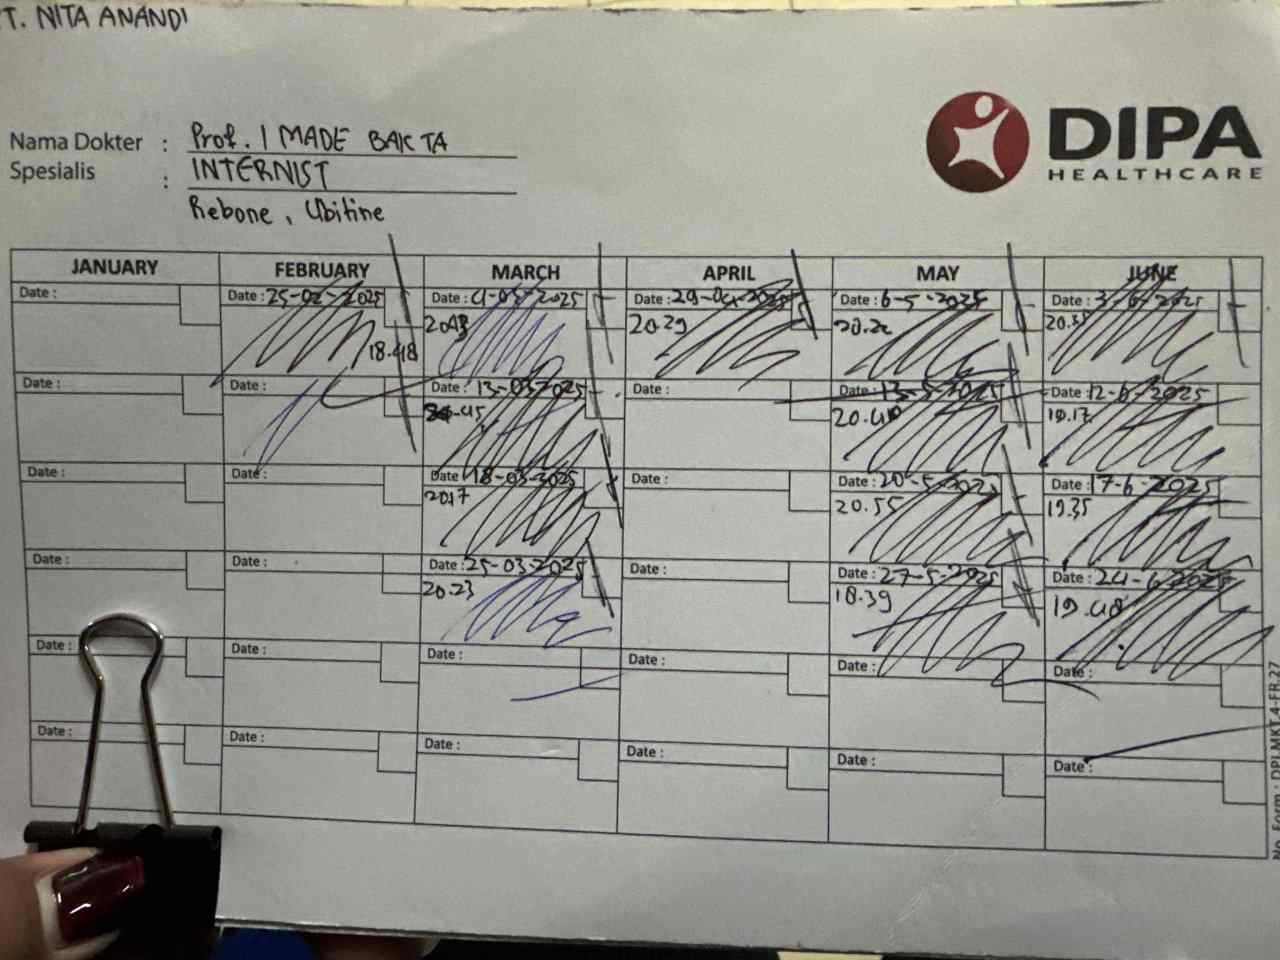 T. NITA ANANDI
DIPA
HEALTHCARE
Nama Dokter : Prof. I MADE BAKTA
Spesialis : INTERNIST
Rebone, Ubitine
JANUARY FEBRUARY MARCH APRIL MAY JUNE
Date : Date : 25-02-2025 Date : 4-03-2025 Date : 29-04-2025 Date : 6-5-2025 Date : 3-6-2025
18.48 20.29
Date : Date : Date : 13-03-2025 Date : Date : 13-5-2025 Date : 12-6-2025
20.40 19.17
Date : Date : Date : 18-03-2025 Date : Date : 20-5-2025 Date : 17-6-2025
2017 20.55 19.35
Date : Date : Date : 25-03-2025 Date : Date : 27-5-2025 Date : 24-6-2025
20.23 18.39 19.48
Date : Date : Date : Date : Date : Date :
Date : Date : Date : Date : Date : Date :
No. Form : DPI.MKT.4-FR.27